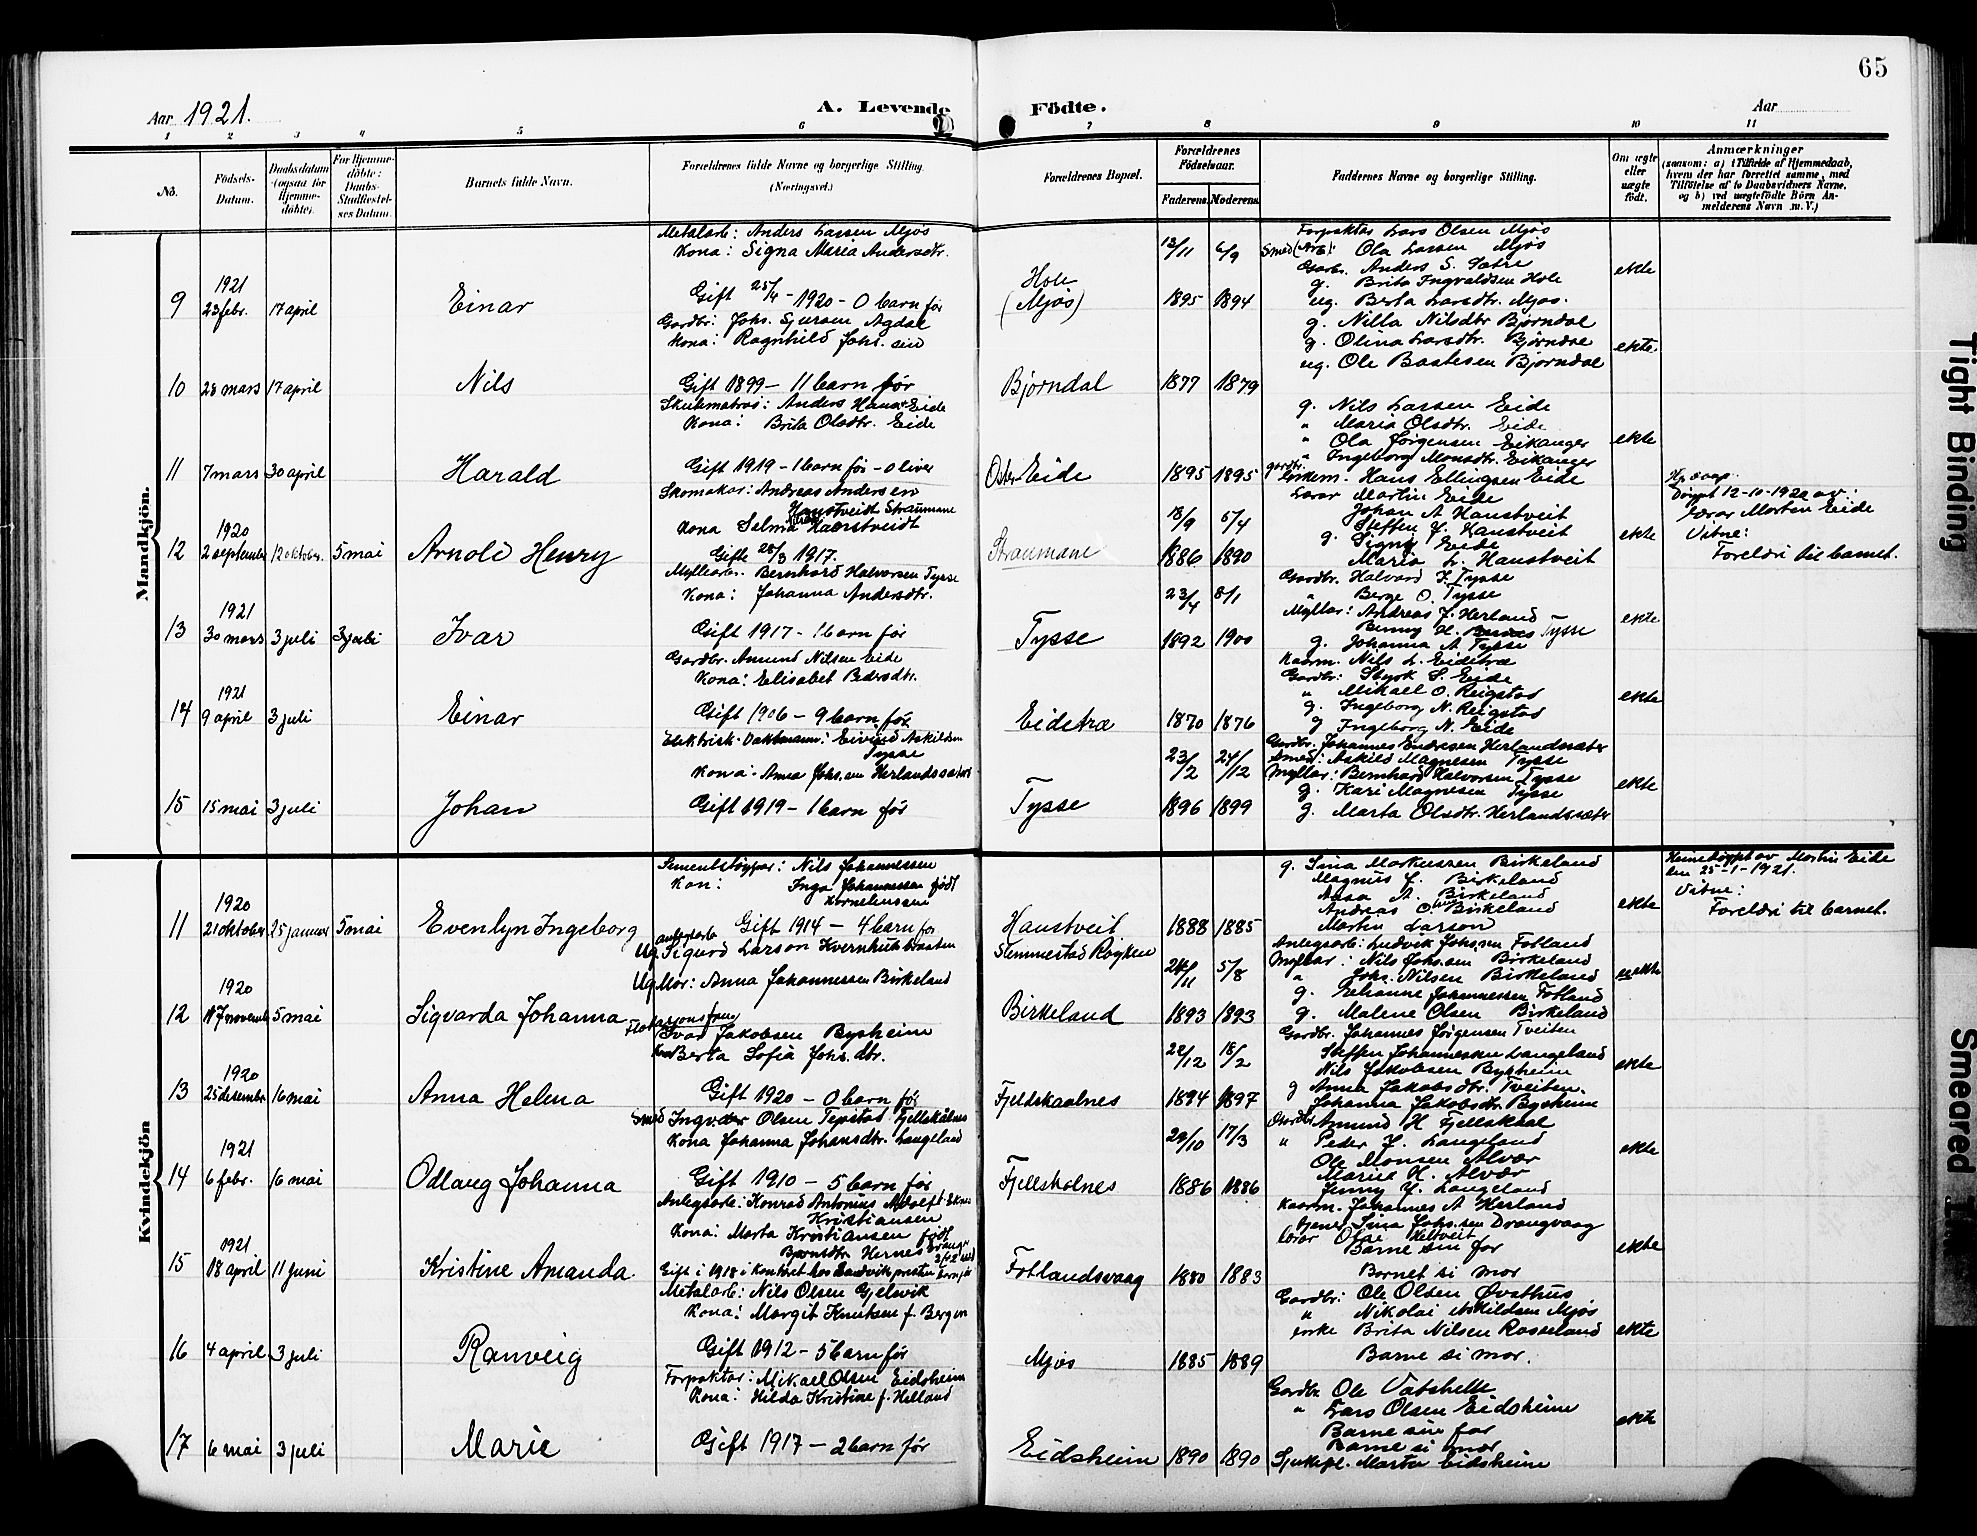 65
Aar 1921.
A. Levende Födte.
Aar
1 2 3 4 5 6 7 8 9 10 11
No.
Födsels-Datum.
Daabsdatum (ogsaa for Hjemmedöbte).
For Hjemmedöbte: Daabs-Stadfæstelses Datum.
Barnets fulde Navn.
Forældrenes fulde Navne og borgerlige Stilling. (Næringsvei.)
Forældrenes Bopæl.
Forældrenes Födselsaar.
Faderens. Moderens.
Faddernes Navne og borgerlige Stilling.
Om ægte eller uægte födt.
Anmærkninger
(saasom: a) i Tilfælde af Hjemmedaab, hvem der har forrettet samme, med Tilföielse af to Daabsvidners Navne, og b) ved uægtefödte Börn Anmelderens Navn m. V.)
Mandkjön.
9
1921
23 febr.
17 april
Einar
Metalarb: Anders Larsen Mjøs
Kona: Signa Maria Andersdtr.
Gift 25/4 - 1920 - 0 barn før
Hole
(Mjøs)
13/11 6/9
1895 1894
Forpaktar Lars Olsen Mjøs
Smed (Arb): Ola Larsen Mjøs
Gardbr. Anders S. Sætre
g. Brita Ingvaldsen Hole
ug. Berta Larsdtr. Mjøs.
ekte
10
28 mars
17 april
Nils
Gardbr: Johs. Sjursen Agdal
Kona: Ragnhild Johs.sen
Gift 1899 - 11 barn før
Bjørndal
1877 1879
g. Nilla Nilsdtr Bjørndal
g. Olina Larsdtr. Bjørndal
ug. Ole Bastesen Bjørndal
ekte
11
7 mars
30 april
Harald
Anders Hans. Eide
Kona: Brita Olsdtr. Eide
Gift 1919 - 1 barn før - 0 liver
Oster Eide
1895 1895
g. Nils Larsen Eide
" Maria Olsdtr. Eide
" Ola Jørgensen Eikanger
" Ingeborg Monsdtr. Eikanger
Hans Ellingsen Eide
ekte
12
1920
2 september
12 oktober.
5 mai
Arnold Henry
Skomakar: Andreas Andersen
Haustveidt Straumane
Kona Selma
Gifte 28/3 1917.
Straumane
18/9 5/4
1886 1890
Lærar Martin Eide
Johan A Haustveit
Steffen J. Haustveit
g. Signy Eide
Maria L. Haustveit
ekte
Døypt 12-10-1920 av:
Lærar Morten Eide
Vitne:
Foreldri til barnet.
13
1921
30 mars
3 juli
3 juli
Ivar
Myllearb. Bernhard Halvorsen Tysse
Kona: Johanna Andersdtr.
Gift 1917 - 1 barn før
Tysse
23/4 8/1
1892 1900
Gardbr. Halvard J. Tysse
" Berge O. Tysse
Myllar: Andreas J. Herland
Benny H. Tysse
g. Johanna A Tysse
ekte
14
1921
9 april
3 juli
Einar
Gardbr. Amund Nilsen Eide
Kona: Elisabet Pedersdtr.
Gift 1906 - 9 barn før
Eidetræ
1870 1876
Kaarm. Nils L. Eidetræ
Gardbr: Styrk S. Eide
" Mikael O. Reigstad
g. Ingeborg N. Reigstad
g Ingeborg N. Eide
ekte
15
15 mai
3 juli
Johan
Elektrisk-Vaktmann: Eivind Askildsen
Tysse
Kona: Anna Johs.sen Herlandssæter
Gift 1919 - 1 barn før
Tysse
23/2 24/12
1896 1899
Gardbr. Johannes Endresen Herlandssæter
Smed: Askild Magnesen Tysse
Myllar: Bernhard Halvorsen Tysse
g. Kari Magnesen Tysse
g. Marta Olsdtr. Herlandssæter
ekte
Kvindekjön
11
1920
21 oktober
25 januar
5 mai
Evenlyn Ingeborg
Sementstøypar: Nils Johannessen
Kon: Inga Johannessen født
Kornelиussen
Gift 1914 - 4 barn før
Haustveit
1888 1885
g. Sina Markussen Birkeland
Magnus J. Birkeland
Aasa A. Birkeland
Andreas O. Birkeland
Martin Larson
ekte
Heimedøypt av Martin Eide
den 25-1-1921.
Vitne:
Foreldri til barnet.
12
1920
17 novembr
5 mai
Sigvarda Johanna
Ug. Sigurd Larson Kvernhusbraaten
Ug Mor: Anna Johannessen Birkeland
Slemmestad Røyken
Birkeland
24/11 5/8
1893 1893
Anlegsarb: Ludvik Johs.sen Fotland
Myllar: Nils Johs.sen Birkeland
" Johs. Nilsen Birkeland
g. Johannessen Fotland
g. Malene Olsen Birkeland
uekte
13
1920
25 desembr
16 mai
Anna Helena
Ivar Jakobsen Bysheim
Kona Berta Sofia Johs.dtr.
Gift 1920 - 0 barn før
Fjeldskaalnes
22/12 18/2
1894 1897
Gardbr. Johannes Jørgensen Tveiten
Steffen Johannessen Langeland
Nils Jakobsen Bysheim
g Anna Jakobsdtr. Tveiten.
Johanna Jakobsdtr Bysheim
ekte
14
1921
6 febr.
16 mai
Odlaug Johanna
Smed Ingvar Olsen Tepstad Fjellskålnes
Kona Johanna Johansdtr. Langeland
Gift 1910 - 5 barn før
Fjellskolnes
29/10 17/3
1886 1886
Gardbr Amund H Fjellskaal
" Peder J. Langeland
Ole Monsen Alvær
Marie H. Alvær
Jenny J. Langeland
ekte
15
1921
18 april
11 juni
Kristine Amanda
Anlegsarb: Konrad Antonius Adolf
Kristiansen
Kona: Marta Kristiansen født
Bjørnsdtr Hernes
Fotlandsvaag
1880 1883
Kaarm. Johannes A Herland
tjener Sina Johs.sen Drangvaag
lærar Olai Heltveit
Barne sin far
Barnet si mor
ekte
16
4 april
3 juli
Ranveig
Metalarb: Nils Olsen Gjelsvik
Kona: Margit Knutsen f. Bergen
Gift 1912 - 5 barn før
Mjøs
1885 1889
Gardbr: Ole Olsen Øvsthus
" Nikolai Askildsen Mjøs
Brita Nilsen Rosseland
Barne si mor.
ekte
17
6 mai
3 juli
Marie
Forpaktar: Mikael Olsen Eidsheim
Kona: Hilda Kristine f. Helland
Gift 1917 - 2 barn før
Eidsheim
1890 1890
Gardbr Ole Vatshelle
" Lars Olsen Eidsheim
Barne sin far
Barne si mor
Sjukepl. Marta Eidsheim
ekte
Tight Binding
Smeared Ink